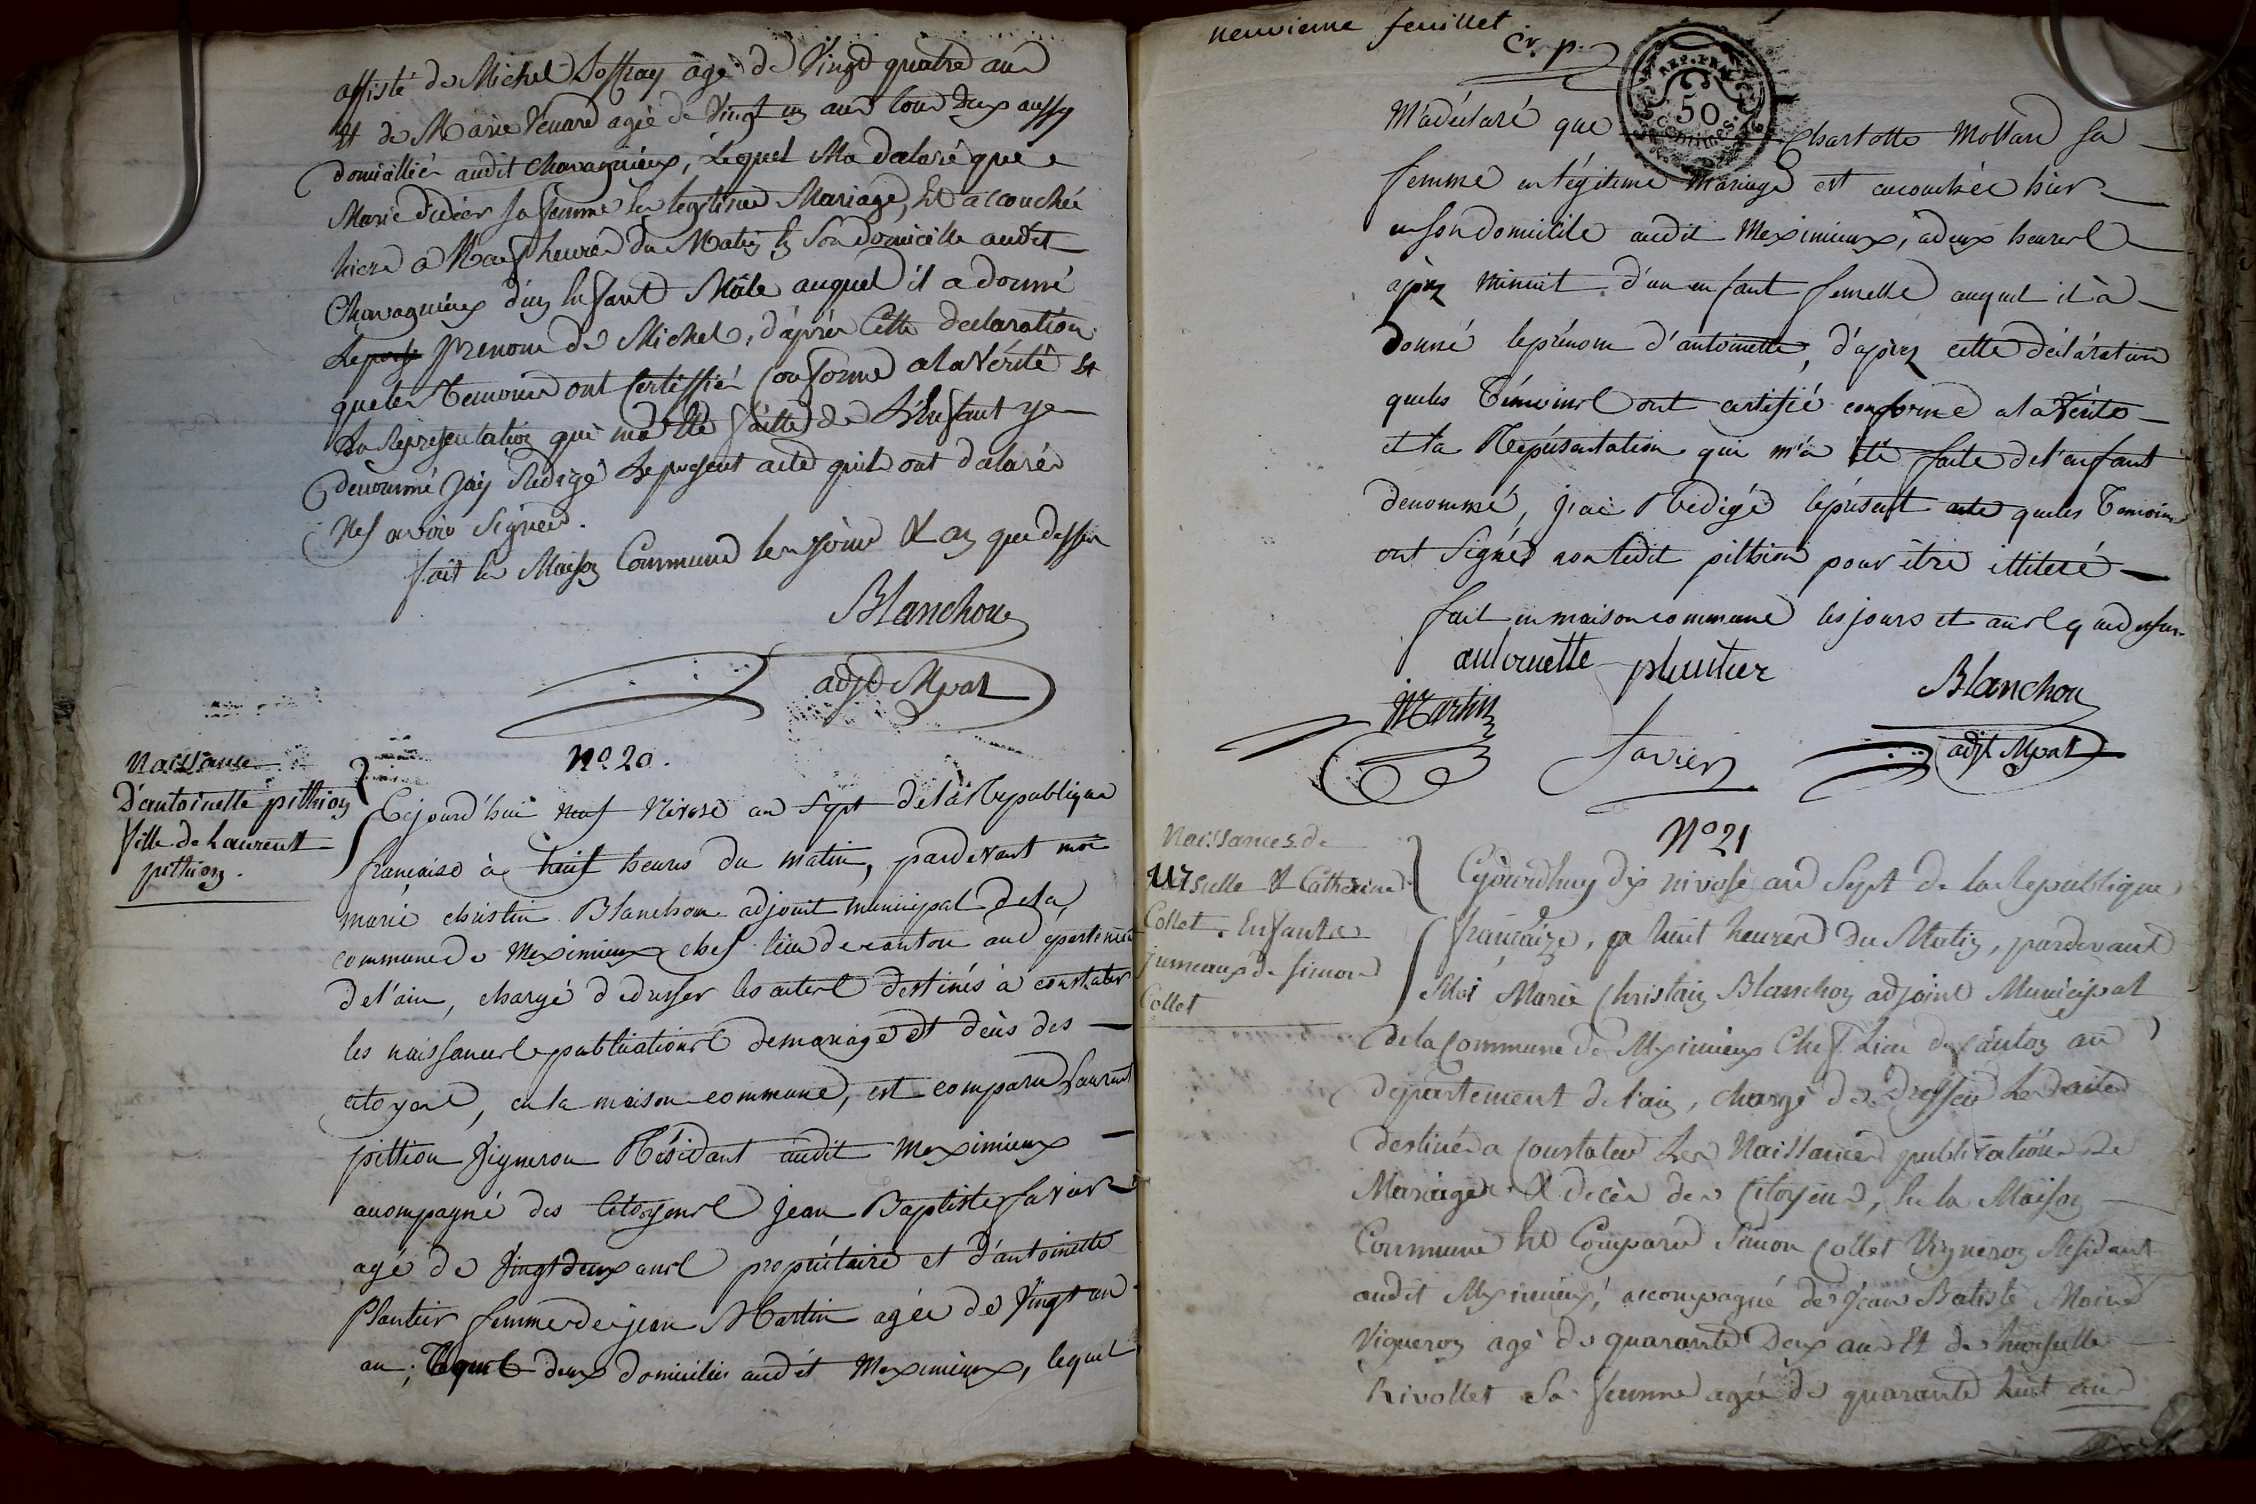 assisté de Michel Joffray agé de Vingt quatre ans
Et de Marie Venard agée de Vingt un ans tous deux aussy
domicilliés audit Chavagnieux, Lequel Ma declaré que
Marie didier sa femme En légitime Mariage, Est accouchée
hiere a Neuf heures du Matin En son domicille audit
Chavagnieux d'un Enfant Mâle auquel il a donné
Le prenom de Michel, d'après Cette declaration
que les Temoins ont Certiffiés Conforme a la Vérité Et
La Représentation qui ma Eté faitte de L'Enfant y
denommé J'ay Rédigé Le present acte qu'ils ont declarés
signer.
fait En Maison Commune les jours & an que dessus
Blanchon
adjt Mpal
Naissance
D'antoinette pithion
fille de Laurent
pithion.
No 20.
Cejourd'hui neuf Nivose an Sept de la République
française à heuf heures du matin, pardevant moi
marie christin Blanchon adjoint municipal de la
commune de Meximieux chef lieu de canton au departement
de l'ain, chargé de dresser les actes destinés à constater
les naissances publications de mariage et décès des
citoyens, en la maison commune, est comparu Laurent
pittion Vigneron Résidant audit Meximieux
accompagné des Citoyens Jean Baptiste Savier
agé de Vingt deux ans propriétaire et d'antoinette
Plantier femme de jean Martin agée de Vingt un
an; deux domiciliés audit Meximieux, lequel
neuvieme feuillet.
Cr. p.
REP. FRA.
50
CENTIMES
M'a déclaré que Charlotte Mollard sa
femme en légitime Mariage est accouchée hier
en son domicile audit Meximieux, à deux heures
après minuit d'un enfant femelle auquel il à
donné le prénom d'antoinette, d'après cette déclaration
que les Témoins ont certifié conforme a la Vérité
et la Représentation qui m'a été faite de l'enfant
denommé, j'ai Rédigé le présent acte que les Temoins
ont Signés non ledit pithion pour être illiteré
fait en maison commune les jours et ans que dessus
antoinette plantier
Martin
Savier
Blanchon
adjt Mpal
Naissances de
Ursulle & Catherine
Collet. Enfants
jumeaux de Simon
Collet
No 21
Cejourd'huy dix nivose an Sept de la Republique
françaize, a huit heures Du Matin, pardevant
Moi Marie Christin Blanchon adjoint Municipal
de la Commune de Meximieux Chef Lieu de Canton au
departement de l'ain, chargé de Dresser Les actes
destinés a Constater Les Naissances publications De
Mariages & décès des Citoyens, En la Maison
Commune Est Comparu Simon Collet Vigneron Résidant
audit Meximieux, accompagné de Jean Batiste Moine
Vigneron agé de quarante Deux ans Et de hursulle
Rivollet Sa femme agée de quarante huit ans